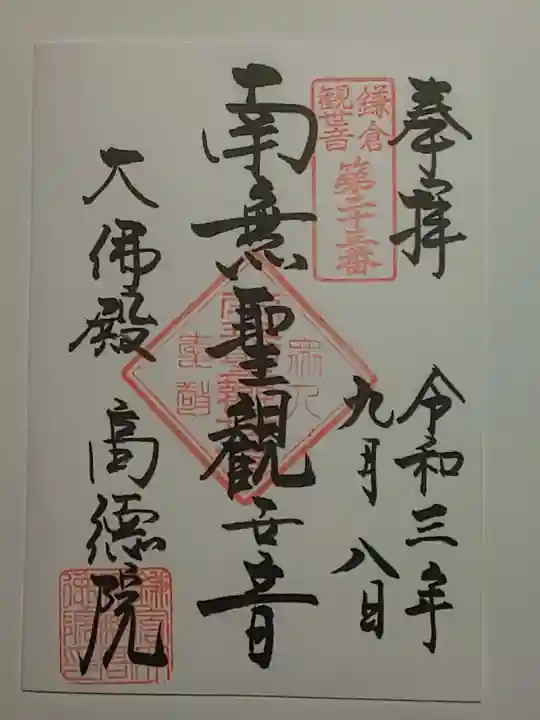 奉拝
令和三年
九月八日
鎌倉
観世音
第二十三番
南無聖観世音
大佛殿 高徳院